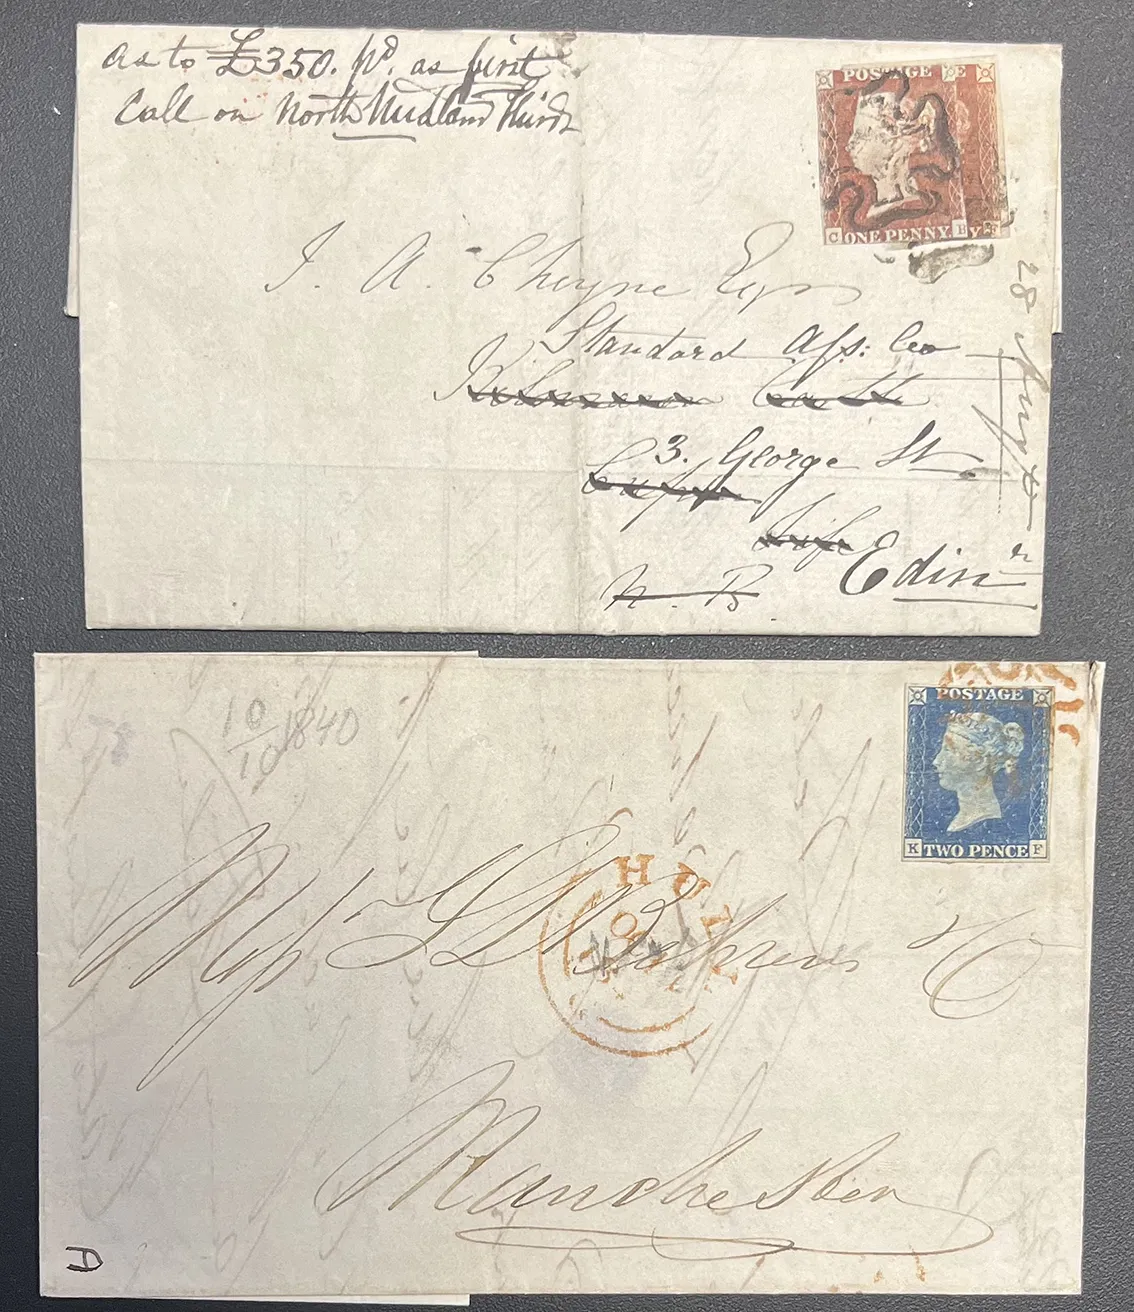 as to £350. pd. as first
Call on North Midland Thirds
POSTAGE E
C ONE PENNY. B
J. A. Cheyne Esqr
Standard Ass: Co
3. George St
Cupar
Fife
Edinr
N. B
28 Augt
10/10 1840
POSTAGE
K TWO PENCE F
HULL
OC 10
Messrs
& Co
Manchester
D